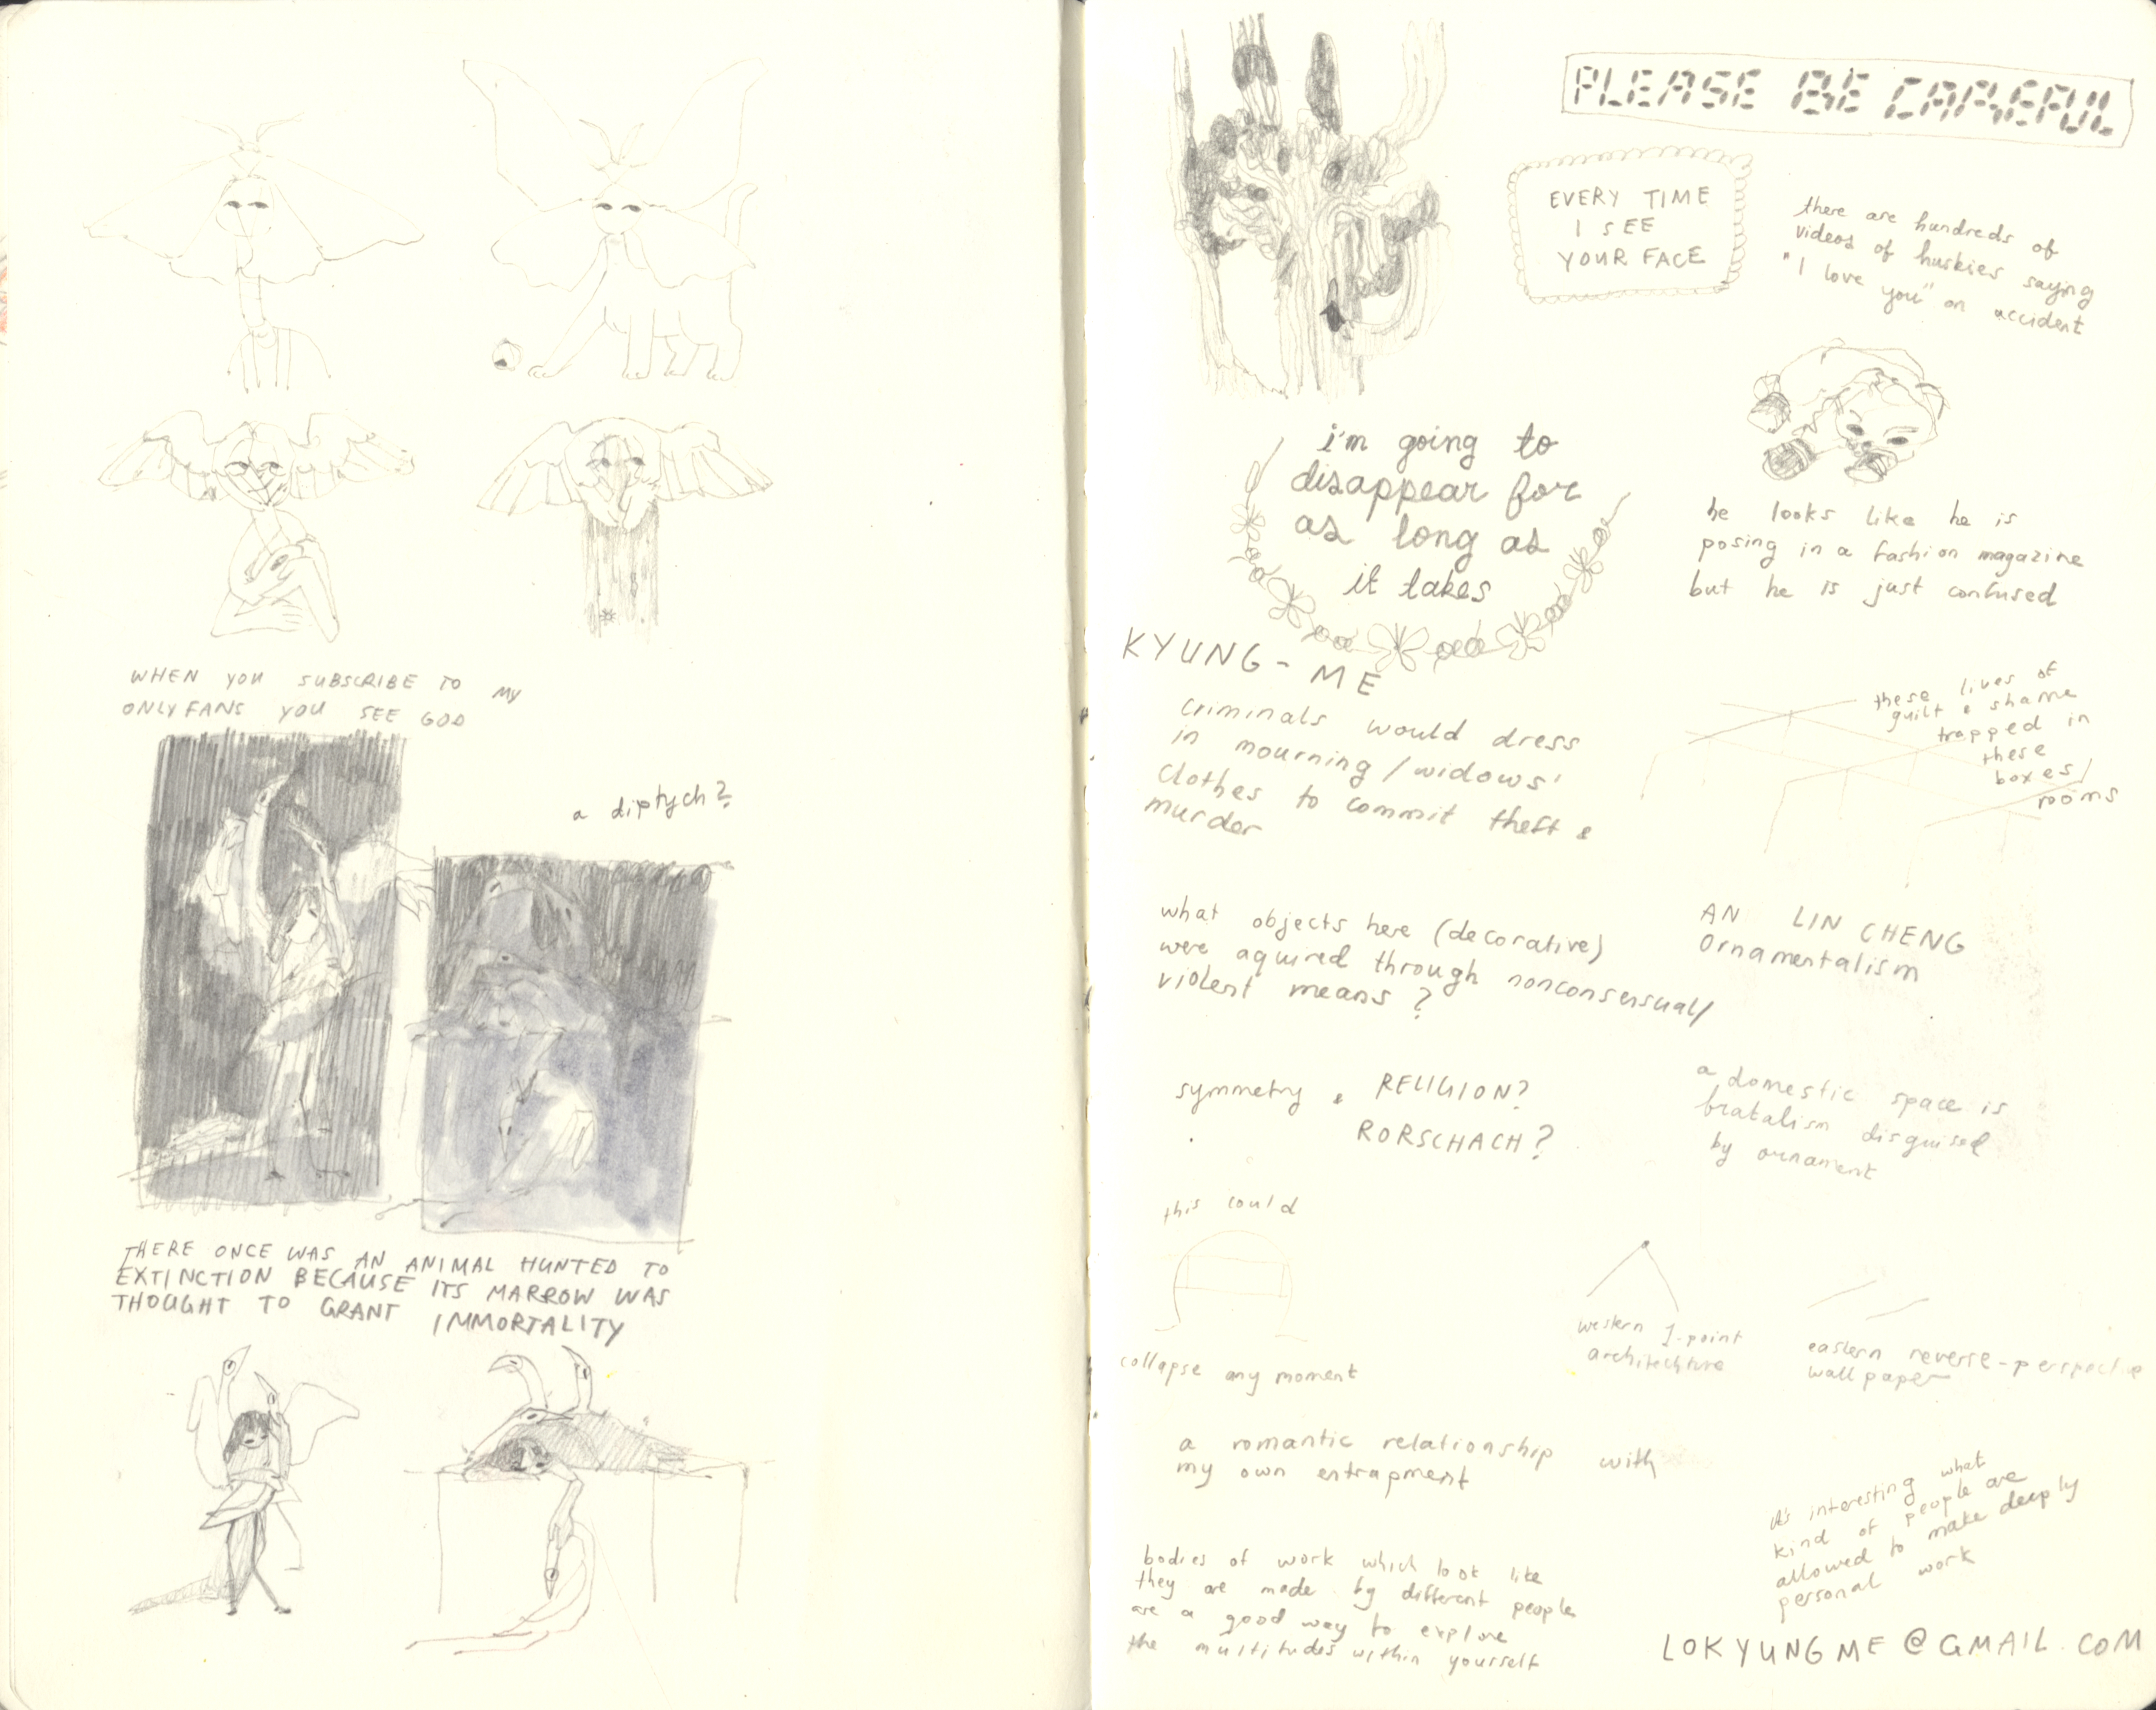 WHEN YOU SUBSCRIBE TO MY
ONLYFANS YOU SEE GOD
a diptych?
THERE ONCE WAS AN ANIMAL HUNTED TO
EXTINCTION BECAUSE ITS MARROW WAS
THOUGHT TO GRANT IMMORTALITY
PLEASE BE CAREFUL
EVERY TIME
I SEE
YOUR FACE
there are hundreds of
videos of huskies saying
"I love you" on accident
i'm going to
disappear for
as long as
it takes
he looks like he is
posing in a fashion magazine
but he is just confused
KYUNG-ME
criminals would dress
in mourning/widows'
clothes to commit theft &
murder
these lives of
guilt & shame
trapped in
these
boxes/
rooms
what objects here (decorative)
were aquired through nonconsensual/
violent means?
AN LIN CHENG
Ornamentalism
symmetry & RELIGION?
RORSCHACH?
a domestic space is
brutalism disguised
by ornament
this could
collapse any moment
western 1-point
architechture
eastern reverse-perspective
wallpaper
a romantic relationship with
my own entrapment
it's interesting what
kind of people are
allowed to make deeply
personal work
bodies of work which look like
they are made by different people
are a good way to explore
the multitudes within yourself
LOKYUNGME@GMAIL.COM